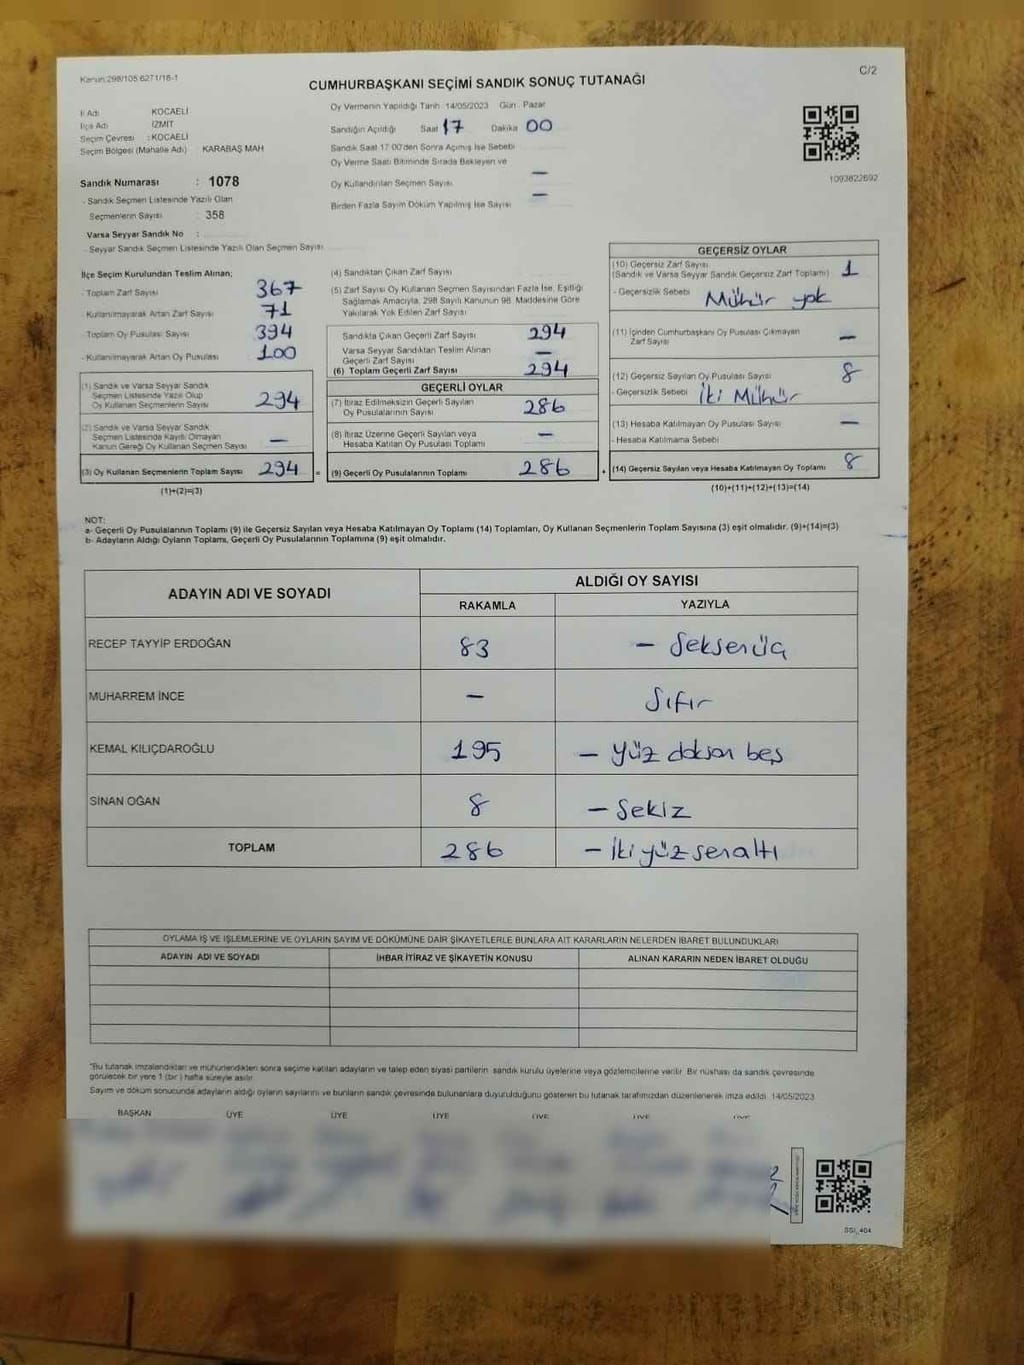 Kanun:298/105 6271/16-1
C/2
CUMHURBAŞKANI SEÇİMİ SANDIK SONUÇ TUTANAĞI
İl Adı KOCAELİ
İlçe Adı İZMİT
Seçim Çevresi : KOCAELİ
Seçim Bölgesi (Mahalle Adı) KARABAŞ MAH
Sandık Numarası : 1078
- Sandık Seçmen Listesinde Yazılı Olan
Seçmenlerin Sayısı : 358
Varsa Seyyar Sandık No :
- Seyyar Sandık Seçmen Listesinde Yazılı Olan Seçmen Sayısı
Oy Vermenin Yapıldığı Tarih 14/05/2023 Gün Pazar
Sandığın Açıldığı Saat 17 Dakika 00
Sandık Saat 17 00'den Sonra Açılmış İse Sebebi
Oy Verme Saati Bitiminde Sırada Bekleyen ve
Oy Kullandırılan Seçmen Sayısı —
Birden Fazla Sayım Döküm Yapılmış İse Sayısı —
1093822692
İlçe Seçim Kurulundan Teslim Alınan;
- Toplam Zarf Sayısı 367
- Kullanılmayarak Artan Zarf Sayısı 71
- Toplam Oy Pusulası Sayısı 394
- Kullanılmayarak Artan Oy Pusulası 100
(1) Sandık ve Varsa Seyyar Sandık
Seçmen Listesinde Yazılı Olup
Oy Kullanan Seçmenlerin Sayısı 294
(2) Sandık ve Varsa Seyyar Sandık
Seçmen Listesinde Kayıtlı Olmayan
Kanun Gereği Oy Kullanan Seçmen Sayısı —
(3) Oy Kullanan Seçmenlerin Toplam Sayısı 294 =
(1)+(2)=(3)
(4) Sandıktan Çıkan Zarf Sayısı
(5) Zarf Sayısı Oy Kullanan Seçmen Sayısından Fazla İse, Eşitliği
Sağlamak Amacıyla, 298 Sayılı Kanunun 98. Maddesine Göre
Yakılarak Yok Edilen Zarf Sayısı
Sandıkta Çıkan Geçerli Zarf Sayısı 294
Varsa Seyyar Sandıktan Teslim Alınan
Geçerli Zarf Sayısı —
(6) Toplam Geçerli Zarf Sayısı 294
GEÇERLİ OYLAR
(7) İtiraz Edilmeksizin Geçerli Sayılan
Oy Pusulalarının Sayısı 286
(8) İtiraz Üzerine Geçerli Sayılan veya
Hesaba Katılan Oy Pusulası Toplamı —
(9) Geçerli Oy Pusulalarının Toplamı 286 +
GEÇERSİZ OYLAR
(10) Geçersiz Zarf Sayısı
(Sandık ve Varsa Seyyar Sandık Geçersiz Zarf Toplamı) 1
- Geçersizlik Sebebi Mühür yok
(11) İçinden Cumhurbaşkanı Oy Pusulası Çıkmayan
Zarf Sayısı —
(12) Geçersiz Sayılan Oy Pusulası Sayısı 8
- Geçersizlik Sebebi İki Mühür
(13) Hesaba Katılmayan Oy Pusulası Sayısı —
- Hesaba Katılmama Sebebi
(14) Geçersiz Sayılan veya Hesaba Katılmayan Oy Toplamı 8
(10)+(11)+(12)+(13)=(14)
NOT:
a- Geçerli Oy Pusulalarının Toplamı (9) ile Geçersiz Sayılan veya Hesaba Katılmayan Oy Toplamı (14) Toplamları, Oy Kullanan Seçmenlerin Toplam Sayısına (3) eşit olmalıdır. (9)+(14)=(3)
b- Adayların Aldığı Oyların Toplamı, Geçerli Oy Pusulalarının Toplamına (9) eşit olmalıdır.
ADAYIN ADI VE SOYADI ALDIĞI OY SAYISI
RAKAMLA YAZIYLA
RECEP TAYYİP ERDOĞAN 83 — Seksenüç
MUHARREM İNCE — Sıfır
KEMAL KILIÇDAROĞLU 195 — Yüz doksan beş
SİNAN OĞAN 8 — Sekiz
TOPLAM 286 — İki yüz senaltı
OYLAMA İŞ VE İŞLEMLERİNE VE OYLARIN SAYIM VE DÖKÜMÜNE DAİR ŞİKAYETLERLE BUNLARA AİT KARARLARIN NELERDEN İBARET BULUNDUKLARI
ADAYIN ADI VE SOYADI İHBAR İTİRAZ VE ŞİKAYETİN KONUSU ALINAN KARARIN NEDEN İBARET OLDUĞU
"Bu tutanak imzalandıktan ve mühürlendikten sonra seçime katılan adayların ve talep eden siyasi partilerin sandık kurulu üyelerine veya gözlemcilerine verilir. Bir nüshası da sandık çevresinde
görülecek bir yere 1 (bir ) hafta süreyle asılır.
Sayım ve döküm sonucunda adayların aldığı oyların sayılarını ve bunların sandık çevresinde bulunanlara duyurulduğunu gösteren bu tutanak tarafımızdan düzenlenerek imza edildi. 14/05/2023
BAŞKAN ÜYE ÜYE ÜYE ÜYE ÜYE ÜYE
SSI_404